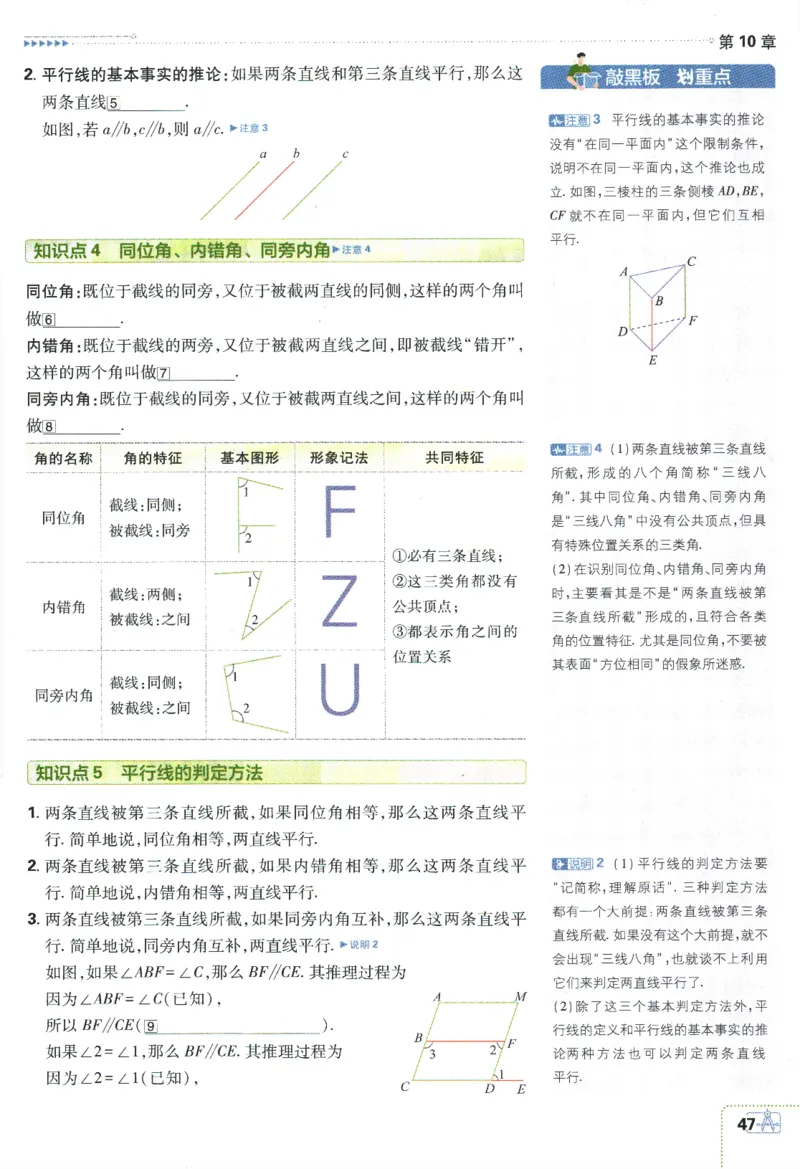 第 10 章
2. 平行线的基本事实的推论:如果两条直线和第三条直线平行,那么这
两条直线5________.
如图,若 a∥b,c∥b,则 a∥c. ▶注意 3
a b c
知识点 4 同位角、内错角、同旁内角▶注意 4
同位角:既位于截线的同旁,又位于被截两直线的同侧,这样的两个角叫
做6________.
内错角:既位于截线的两旁,又位于被截两直线之间,即被截线“错开”,
这样的两个角叫做7________.
同旁内角:既位于截线的同旁,又位于被截两直线之间,这样的两个角叫
做8________.
角的名称 角的特征 基本图形 形象记法 共同特征
同位角
截线:同侧;
被截线:同旁
1
2
F
内错角
截线:两侧;
被截线:之间
1
2
Z
同旁内角
截线:同侧;
被截线:之间
1
2
U
①必有三条直线;
②这三类角都没有
公共顶点;
③都表示角之间的
位置关系
知识点 5 平行线的判定方法
1. 两条直线被第三条直线所截,如果同位角相等,那么这两条直线平
行. 简单地说,同位角相等,两直线平行.
2. 两条直线被第三条直线所截,如果内错角相等,那么这两条直线平
行. 简单地说,内错角相等,两直线平行.
3. 两条直线被第三条直线所截,如果同旁内角互补,那么这两条直线平
行. 简单地说,同旁内角互补,两直线平行. ▶说明 2
如图,如果∠ABF=∠C,那么 BF∥CE. 其推理过程为
因为∠ABF=∠C(已知),
所以 BF∥CE(9________________).
如果∠2=∠1,那么 BF∥CE. 其推理过程为
因为∠2=∠1(已知),
A M
B 3 2 F
1
C D E
敲黑板 划重点
注意 3 平行线的基本事实的推论
没有“在同一平面内”这个限制条件,
说明不在同一平面内,这个推论也成
立. 如图,三棱柱的三条侧棱 AD,BE,
CF 就不在同一平面内,但它们互相
平行.
A C
B
D F
E
注意 4 (1)两条直线被第三条直线
所截,形成的八个角简称“三线八
角”. 其中同位角、内错角、同旁内角
是“三线八角”中没有公共顶点,但具
有特殊位置关系的三类角.
(2)在识别同位角、内错角、同旁内角
时,主要看其是不是“两条直线被第
三条直线所截”形成的,且符合各类
角的位置特征. 尤其是同位角,不要被
其表面“方位相同”的假象所迷惑.
说明 2 (1)平行线的判定方法要
“记简称,理解原话”. 三种判定方法
都有一个大前提:两条直线被第三条
直线所截. 如果没有这个大前提,就不
会出现“三线八角”,也就谈不上利用
它们来判定两直线平行了.
(2)除了这三个基本判定方法外,平
行线的定义和平行线的基本事实的推
论两种方法也可以判定两条直线
平行.
47